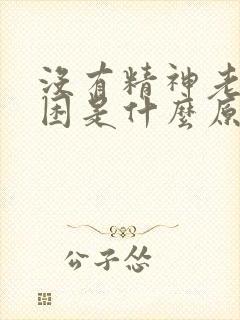 沒有精神老
困是什麼原
公子怂